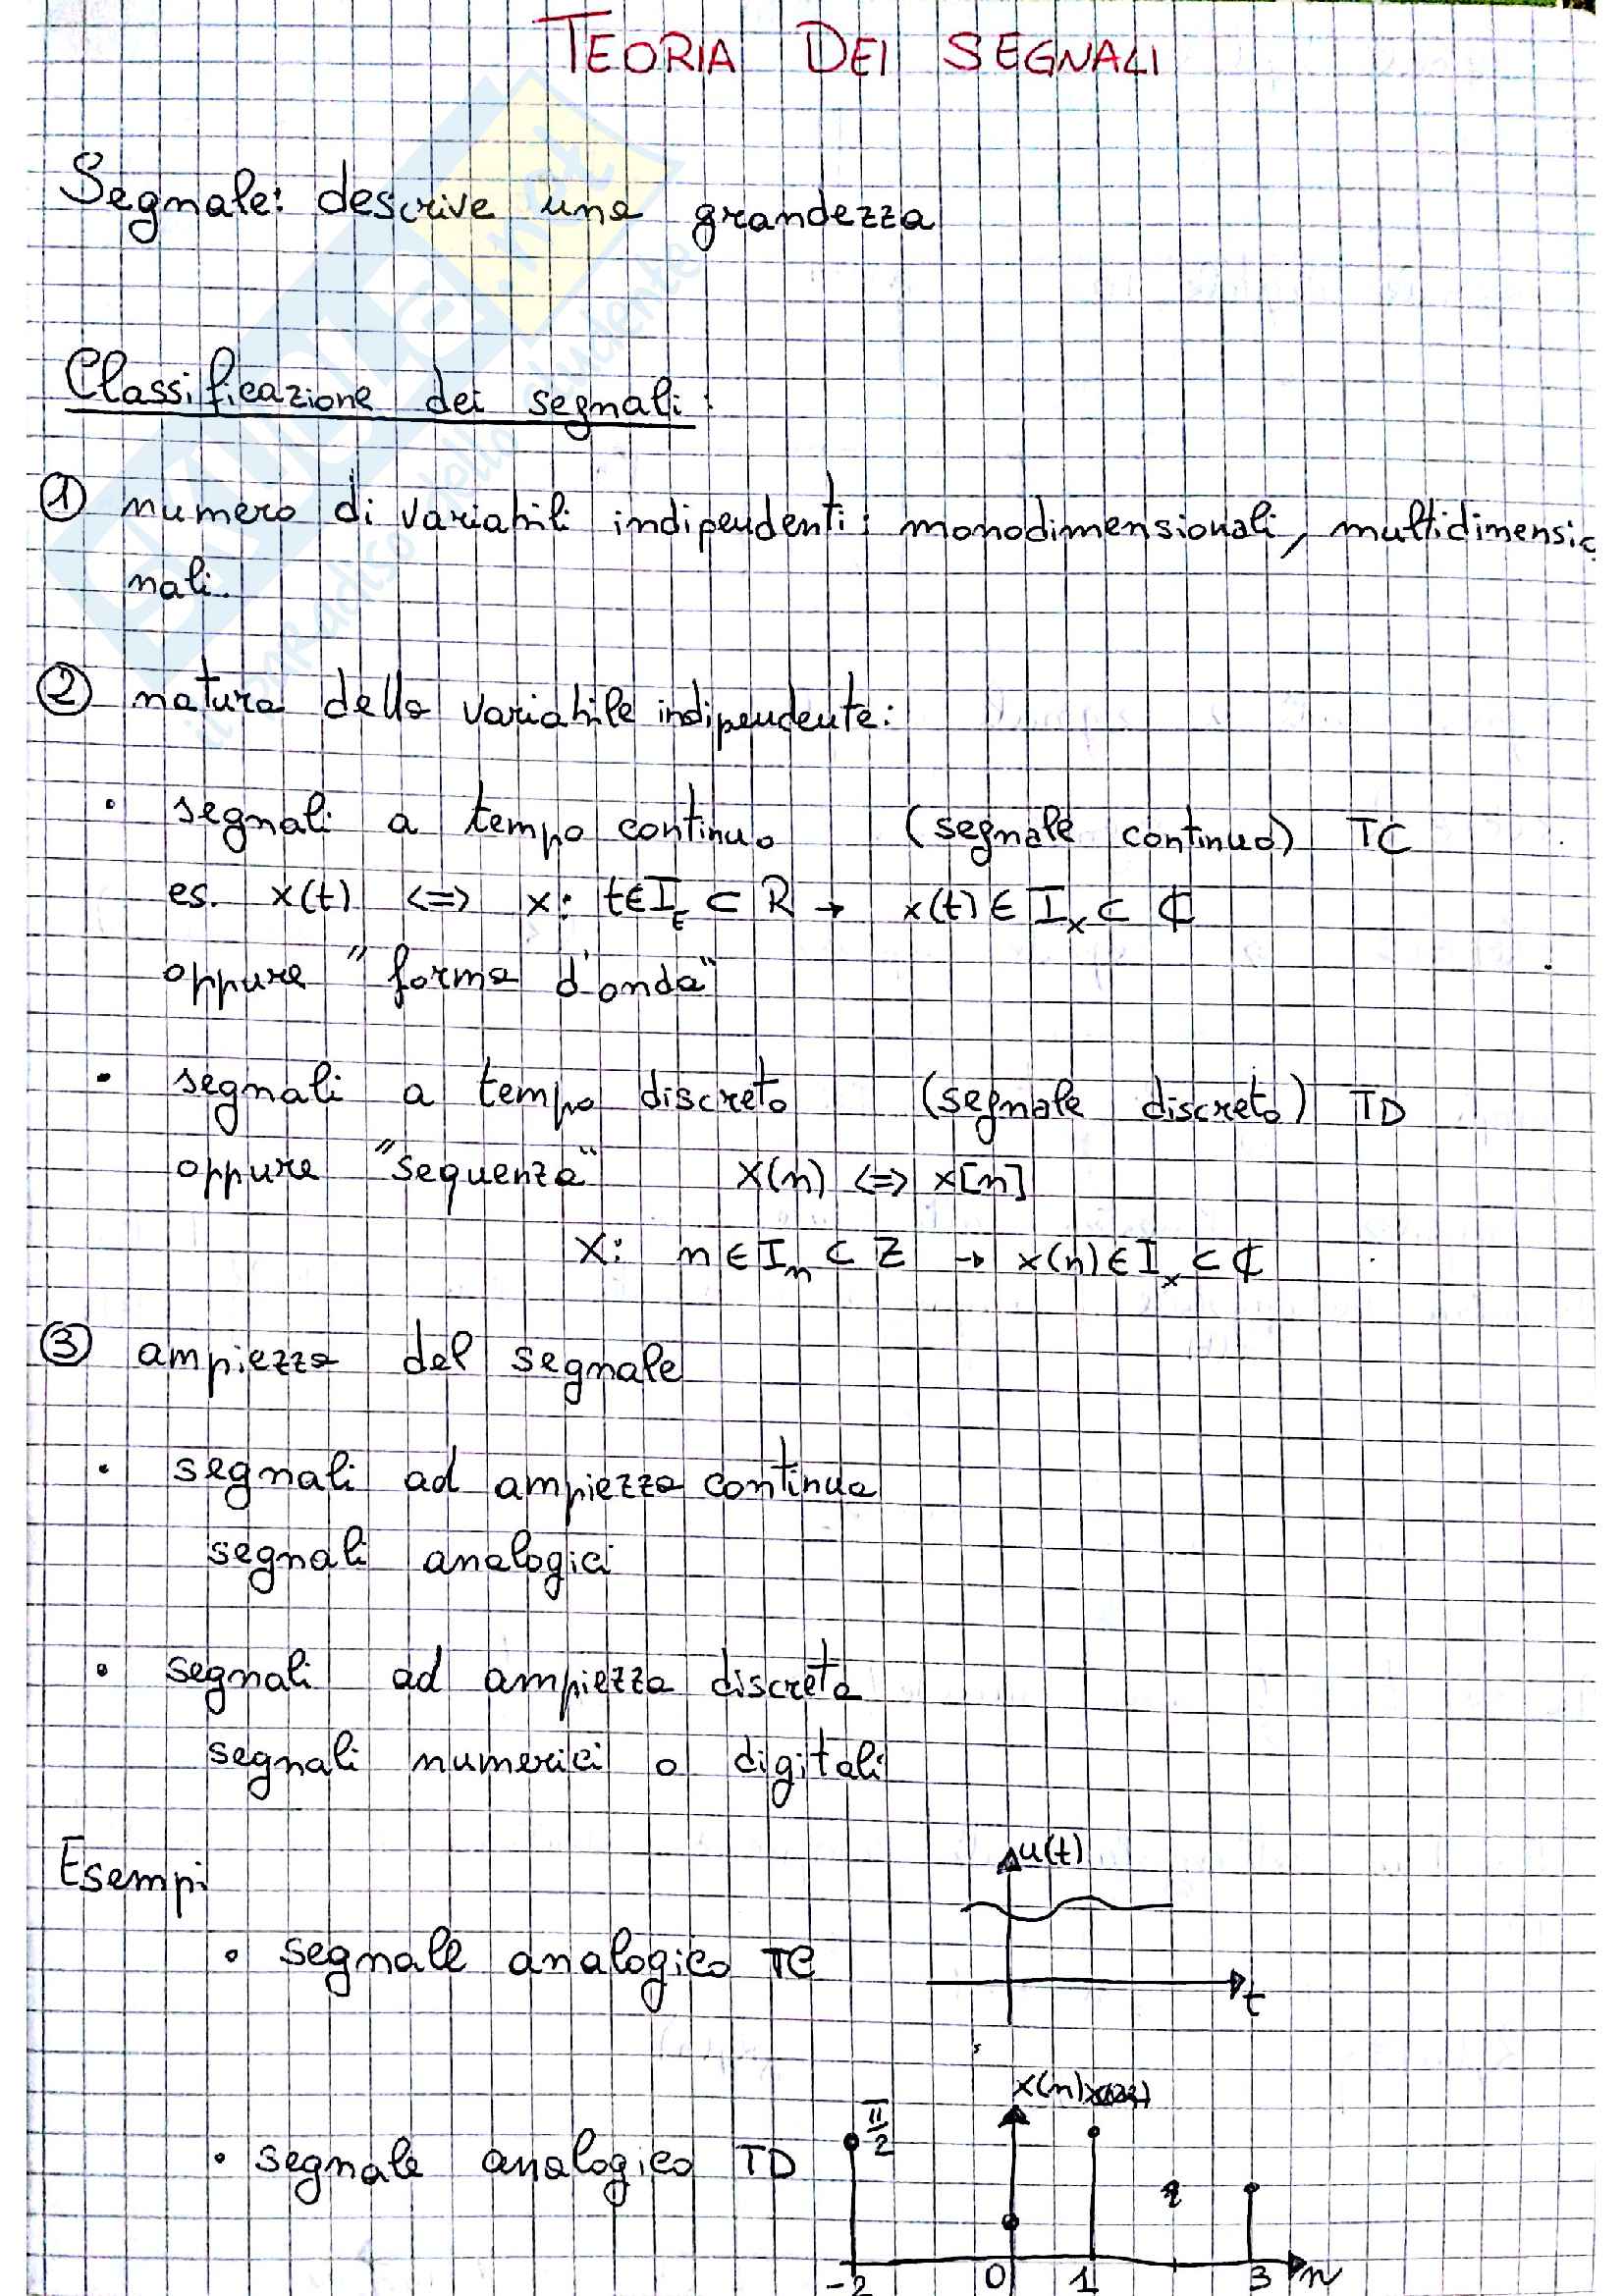 TEORIA DEI SEGNALI
Segnale: descrive una grandezza
Classificazione dei segnali:
① numero di variabili indipendenti: monodimensionali, multidimensio
nali.
② natura della variabile indipendente:
• segnali a tempo continuo (segnale continuo) TC
es. x(t) <=> x: t∈I_t ⊂ R → x(t) ∈ I_x ⊂ ℂ
oppure "forma d'onda"
• segnali a tempo discreto (segnale discreto) TD
oppure "sequenza" X(n) <=> x[n]
X: n ∈ I_n ⊂ Z → x(n) ∈ I_x ⊂ ℂ
③ ampiezza del segnale
• segnali ad ampiezza continua
segnali analogici
• segnali ad ampiezza discreta
segnali numerici o digitali
Esempi
u(t)
• segnale analogico TC
t
x(n)
π/2
• segnale analogico TD
-2 0 1 3 n
SKUOLA.net
il paradiso dello studente